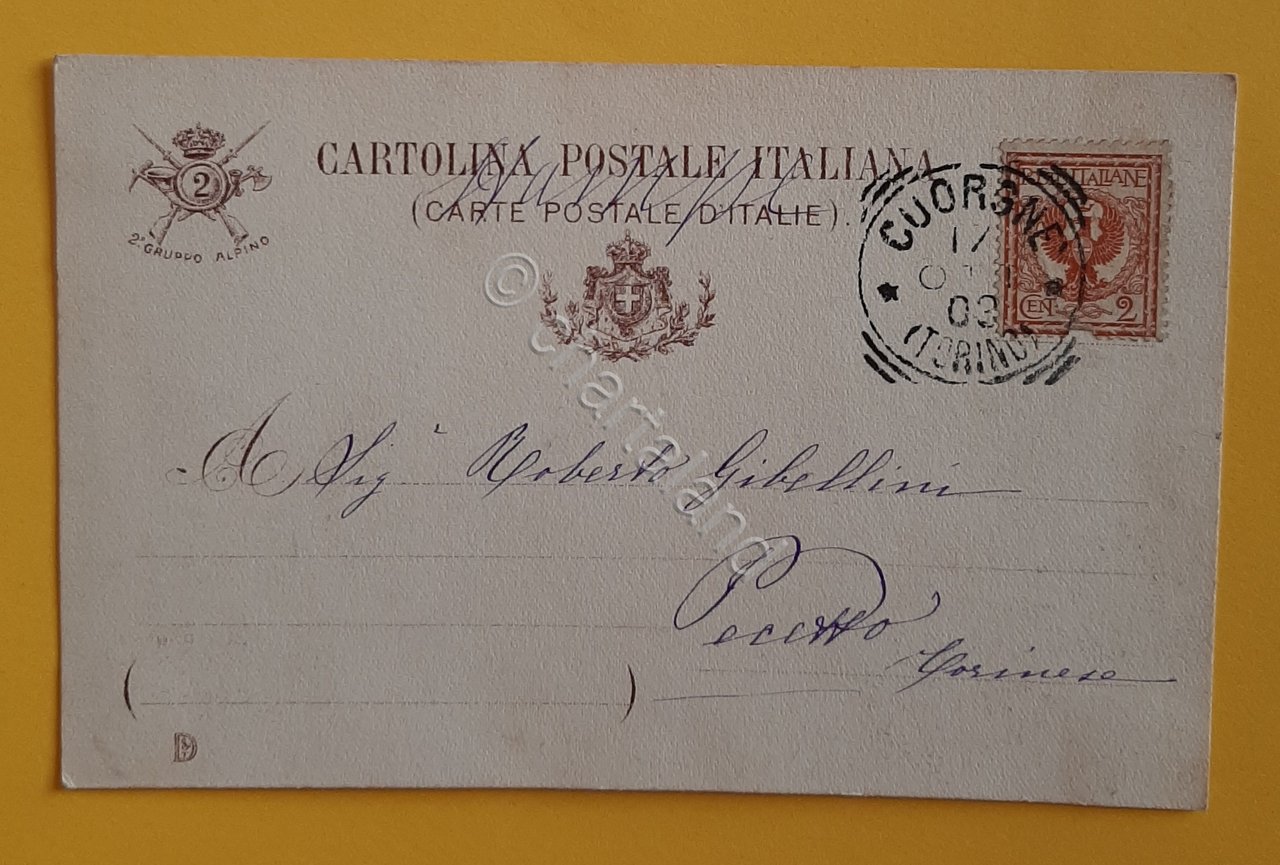 2
2º GRUPPO ALPINO
CARTOLINA POSTALE ITALIANA
(CARTE POSTALE D'ITALIE).
POSTE ITALIANE
CEN. 2
CUORGNÈ
17
03
(TORINO)
© charialand
A Sig.r Roberto Gibellini
Pecetto
Torinese